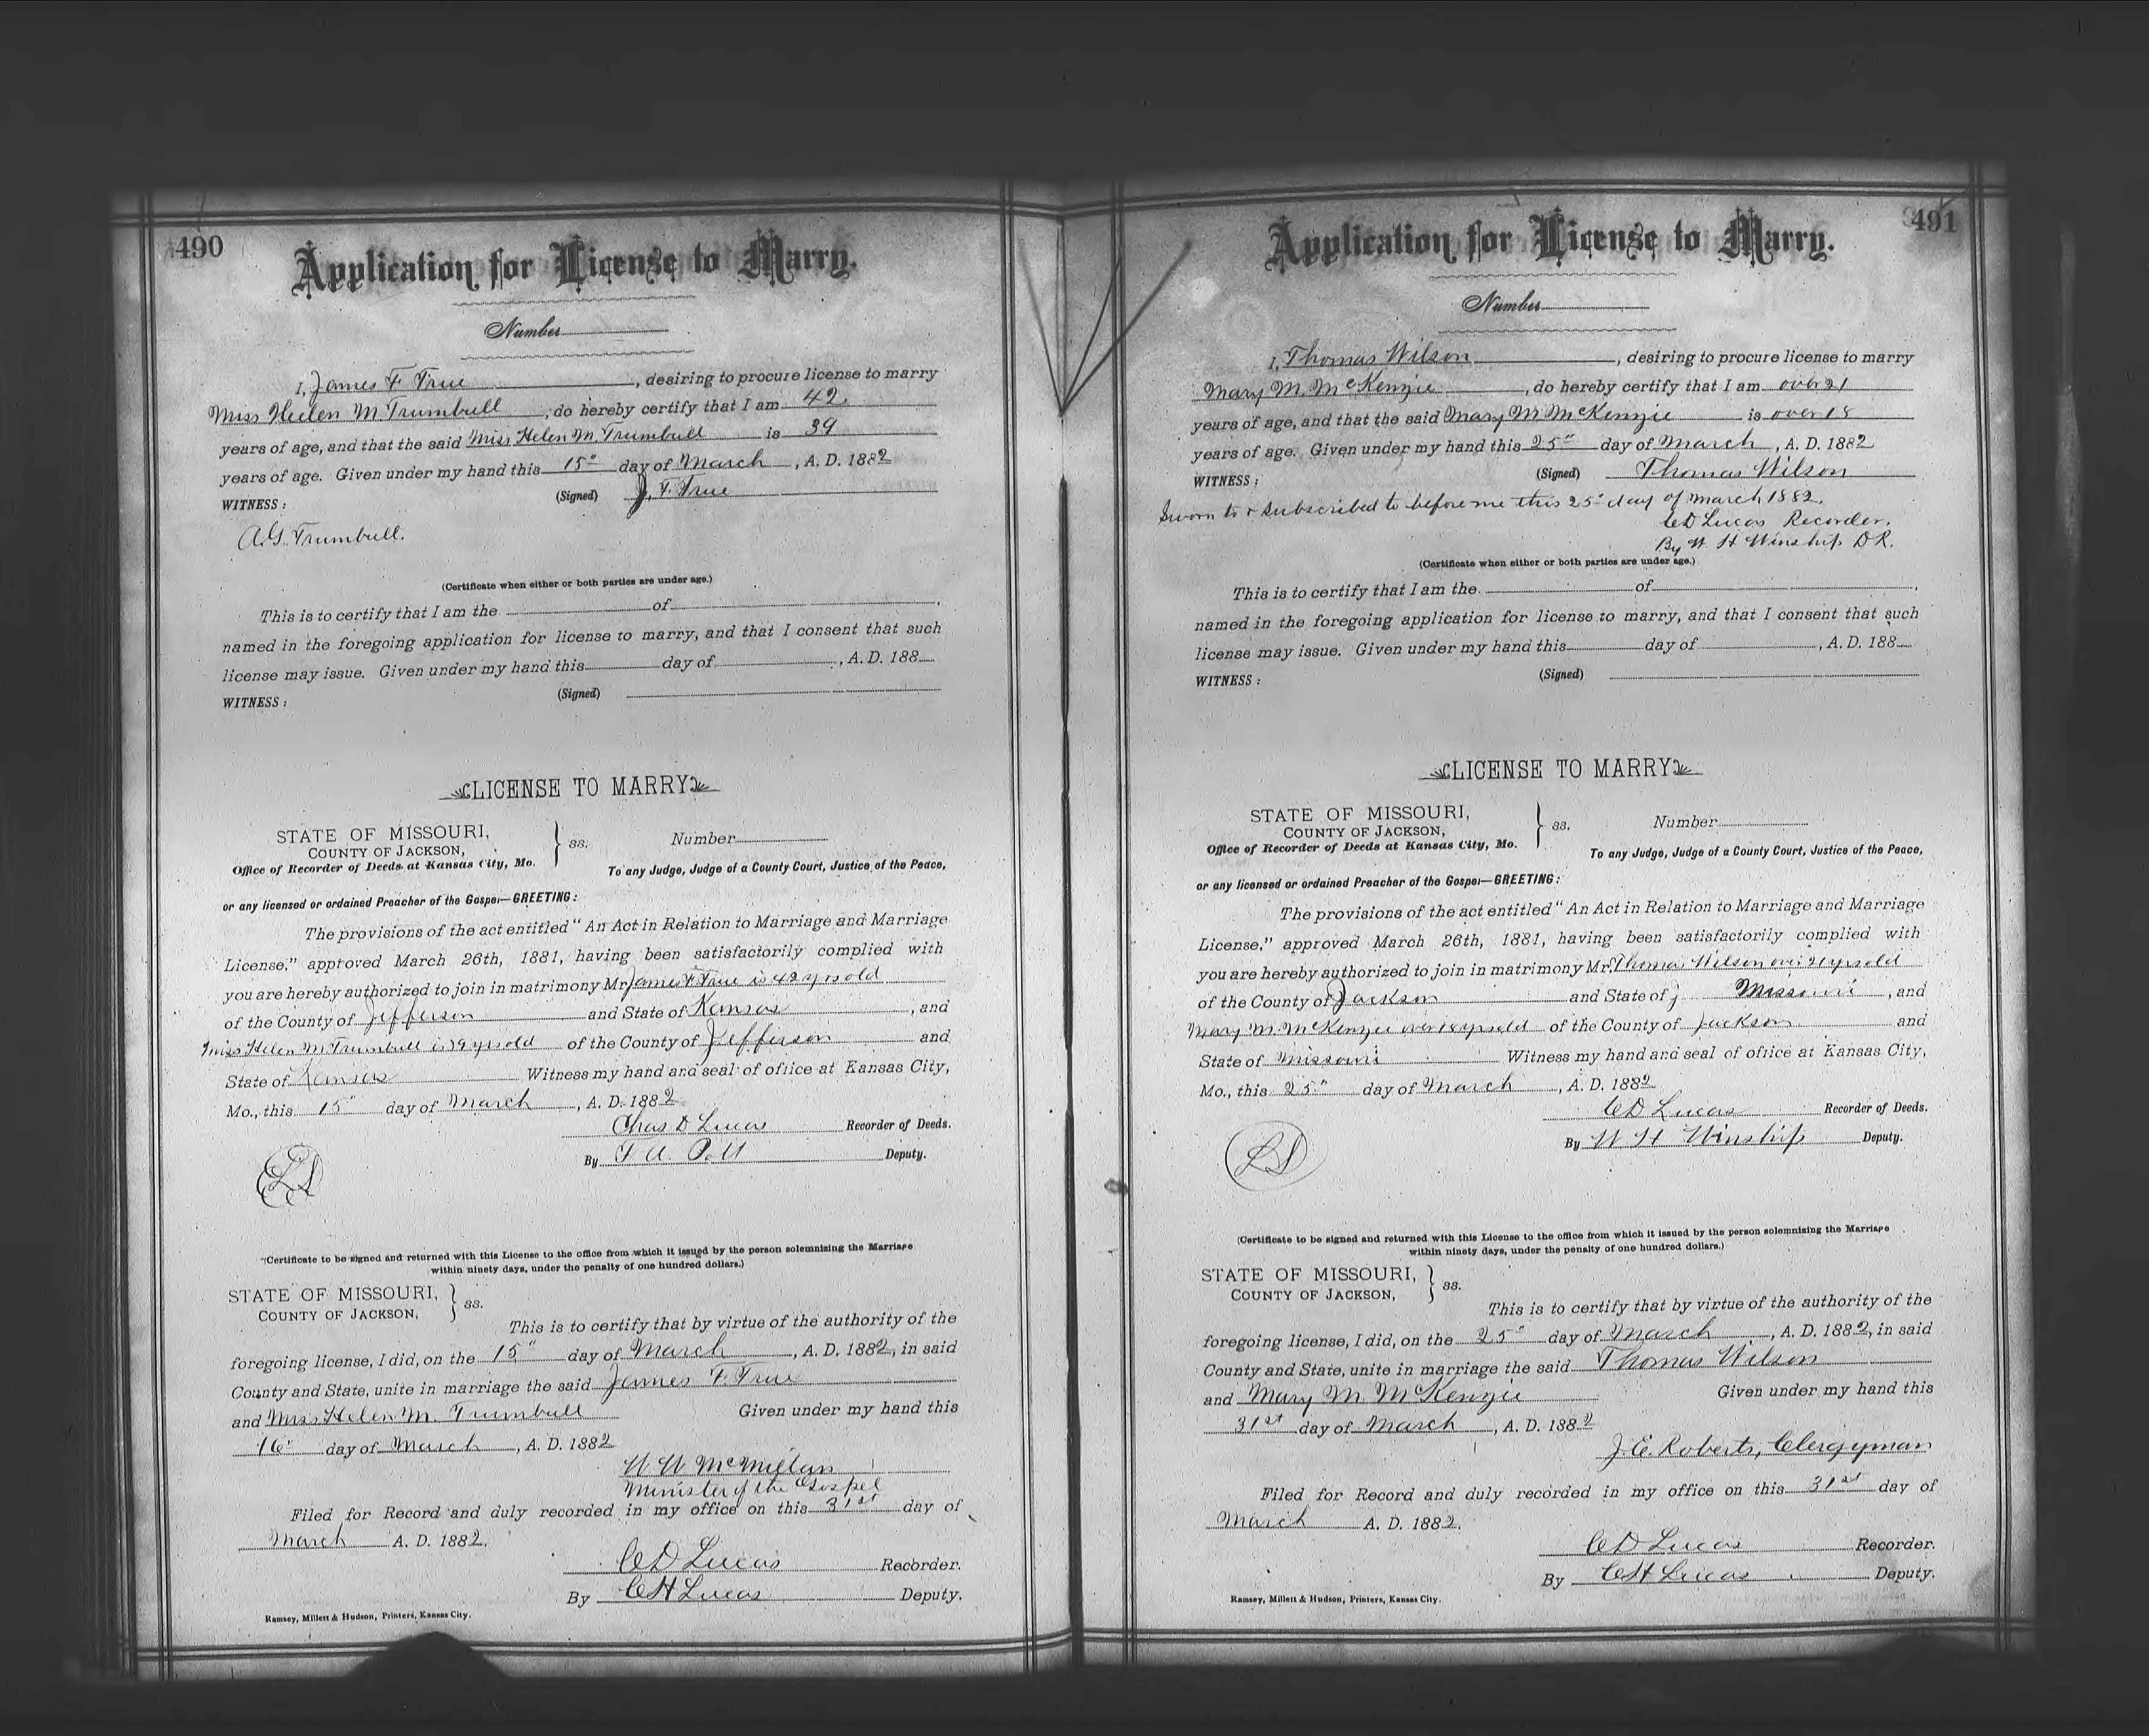 490
Application for License to Marry.
Number
I, James F. True, desiring to procure license to marry
Miss Helen M Trumbull, do hereby certify that I am 42
years of age, and that the said Miss Helen M. Trumbull is 39
years of age. Given under my hand this 15" day of March, A. D. 1882
WITNESS: (Signed) J. F. True
A. G. Trumbull.
(Certificate when either or both parties are under age.)
This is to certify that I am the of ,
named in the foregoing application for license to marry, and that I consent that such
license may issue. Given under my hand this day of , A. D. 188
WITNESS: (Signed)
LICENSE TO MARRY
STATE OF MISSOURI,
COUNTY OF JACKSON, } ss. Number
Office of Recorder of Deeds at Kansas City, Mo.
To any Judge, Judge of a County Court, Justice of the Peace,
or any licensed or ordained Preacher of the Gospel—GREETING:
The provisions of the act entitled "An Act in Relation to Marriage and Marriage
License," approved March 26th, 1881, having been satisfactorily complied with
you are hereby authorized to join in matrimony Mr James F True is 42 yrs old
of the County of Jefferson and State of Kansas, and
Miss Helen M Trumbull is 39 yrs old of the County of Jefferson and
State of Kansas Witness my hand and seal of office at Kansas City,
Mo., this 15" day of March, A. D. 1882
Chas D Lucas Recorder of Deeds.
By Deputy.
LS
(Certificate to be signed and returned with this License to the office from which it issued by the person solemnizing the Marriage
within ninety days, under the penalty of one hundred dollars.)
STATE OF MISSOURI,
COUNTY OF JACKSON, } ss.
This is to certify that by virtue of the authority of the
foregoing license, I did, on the 15" day of March, A. D. 1882, in said
County and State, unite in marriage the said James F. True
and Miss Helen M. Trumbull Given under my hand this
16" day of March, A. D. 1882
W W McMillan
Minister of the Gospel
Filed for Record and duly recorded in my office on this 31st day of
March A. D. 1882.
C D Lucas Recorder.
By C H Lucas Deputy.
Ramsey, Millett & Hudson, Printers, Kansas City.
491
Application for License to Marry.
Number
I, Thomas Wilson, desiring to procure license to marry
Mary M. McKenzie, do hereby certify that I am over 21
years of age, and that the said Mary M McKenzie is over 18
years of age. Given under my hand this 25" day of March, A. D. 1882
WITNESS: (Signed) Thomas Wilson
Sworn to & subscribed to before me this 25" day of March 1882.
C D Lucas Recorder.
By W H Winship D R.
(Certificate when either or both parties are under age.)
This is to certify that I am the of ,
named in the foregoing application for license to marry, and that I consent that such
license may issue. Given under my hand this day of , A. D. 188
WITNESS: (Signed)
LICENSE TO MARRY
STATE OF MISSOURI,
COUNTY OF JACKSON, } ss. Number
Office of Recorder of Deeds at Kansas City, Mo.
To any Judge, Judge of a County Court, Justice of the Peace,
or any licensed or ordained Preacher of the Gospel—GREETING:
The provisions of the act entitled "An Act in Relation to Marriage and Marriage
License," approved March 26th, 1881, having been satisfactorily complied with
you are hereby authorized to join in matrimony Mr. Thomas Wilson over 21 yrs old
of the County of Jackson and State of Missouri, and
Mary M. McKenzie over 18 yrs old of the County of Jackson and
State of Missouri Witness my hand and seal of office at Kansas City,
Mo., this 25" day of March, A. D. 1882
C D Lucas Recorder of Deeds.
By W H Winship Deputy.
LS
(Certificate to be signed and returned with this License to the office from which it issued by the person solemnizing the Marriage
within ninety days, under the penalty of one hundred dollars.)
STATE OF MISSOURI,
COUNTY OF JACKSON, } ss.
This is to certify that by virtue of the authority of the
foregoing license, I did, on the 25" day of March, A. D. 1882, in said
County and State, unite in marriage the said Thomas Wilson
and Mary M McKenzie Given under my hand this
31st day of March, A. D. 1882
J. E. Roberts, Clergyman
Filed for Record and duly recorded in my office on this 31st day of
March A. D. 1882.
C D Lucas Recorder.
By C H Lucas Deputy.
Ramsey, Millett & Hudson, Printers, Kansas City.